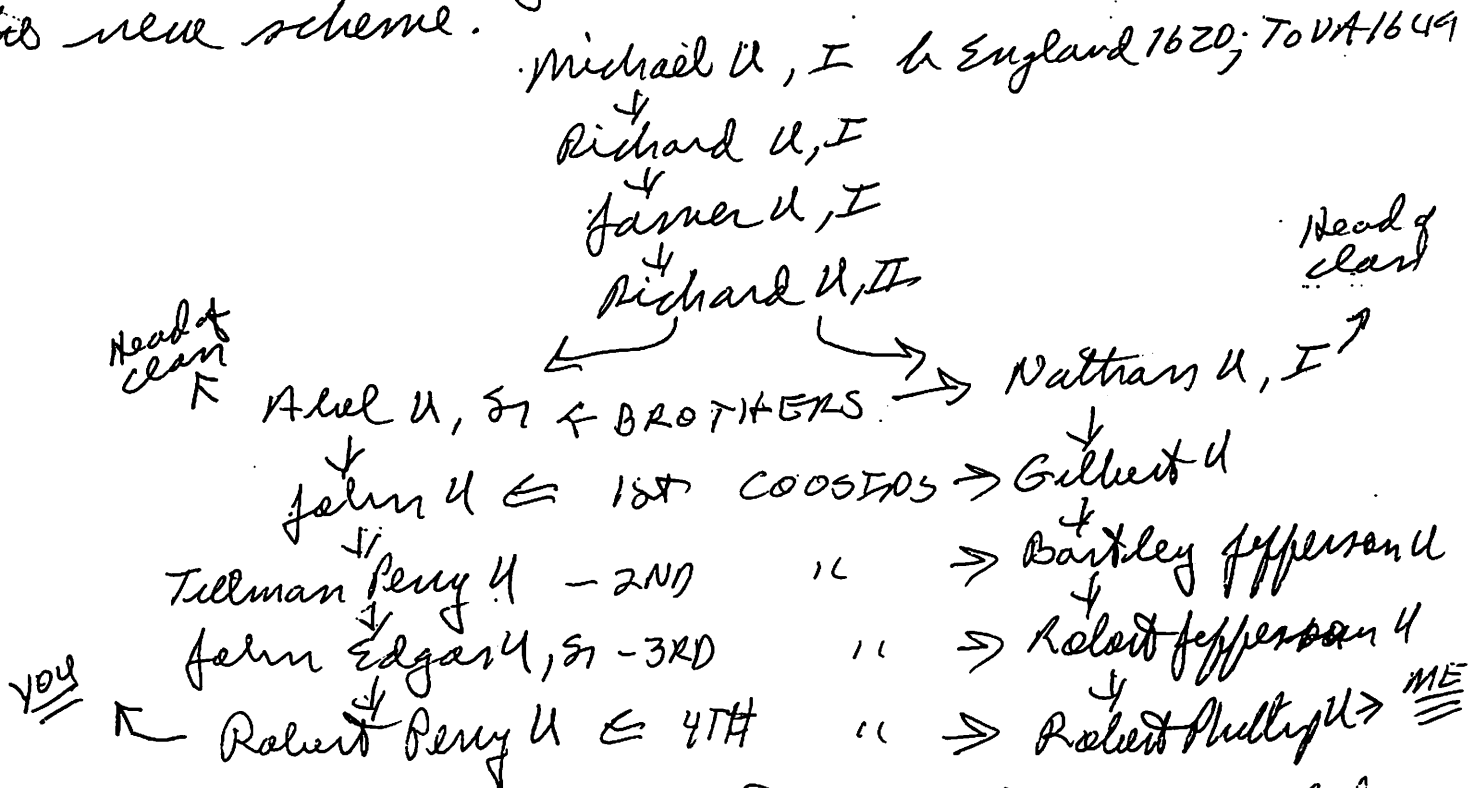 new scheme.
Michael U, I b England 1620; To VA 1649
Richard U, I
James U, I
Richard U, II
Head of clan
Head of clan
Abel U, Sr ← BROTHERS → Nathan U, I
John U ⇐ 1st COOSINS ⇒ Gilbert U
Tillman Perry U - 2ND " ⇒ Bartley Jefferson U
John Edgar U, Sr - 3RD " ⇒ Robert Jefferson U
YOU ← Robert Perry U ⇐ 4TH " ⇒ Robert Phillip U → ME